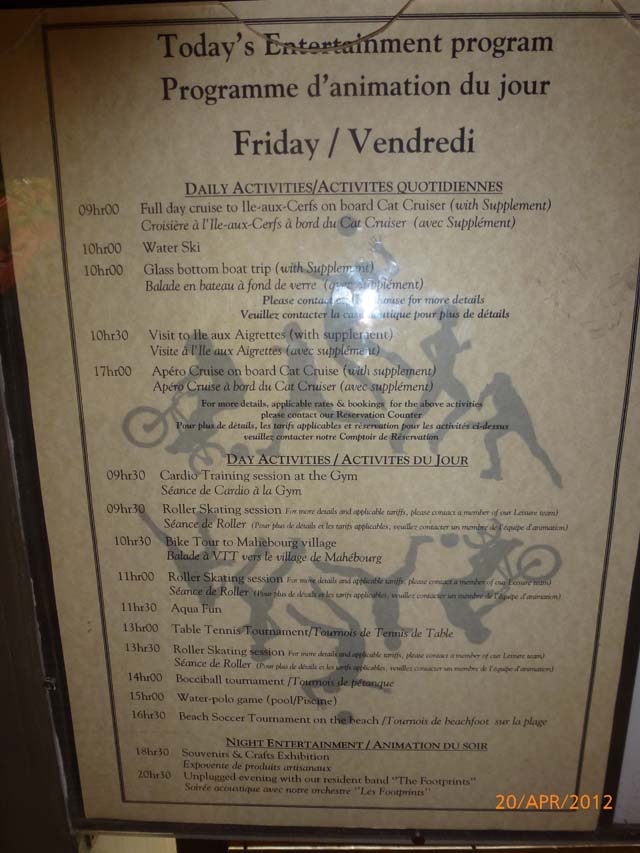 Today's Entertainment program
Programme d'animation du jour
Friday / Vendredi
DAILY ACTIVITIES/ACTIVITES QUOTIDIENNES
09hr00 Full day cruise to Ile-aux-Cerfs on board Cat Cruiser (with Supplement)
Croisière à l'Ile-aux-Cerfs à bord du Cat Cruiser (avec Supplément)
10hr00 Water Ski
10hr00 Glass bottom boat trip (with Supplement)
Balade en bateau à fond de verre (avec supplément)
Please contact house for more details
Veuillez contacter la boutique pour plus de détails
10hr30 Visit to Ile aux Aigrettes (with supplement)
Visite à l'Ile aux Aigrettes (avec supplément)
17hr00 Apéro Cruise on board Cat Cruise (with supplement)
Apéro Cruise à bord du Cat Cruiser (avec supplément)
For more details, applicable rates & bookings for the above activities
please contact our Reservation Counter
Pour plus de détails, les tarifs applicables et réservation pour les activités ci-dessus
veuillez contacter notre Comptoir de Réservation
DAY ACTIVITIES / ACTIVITES DU JOUR
09hr30 Cardio Training session at the Gym
Séance de Cardio à la Gym
09hr30 Roller Skating session For more details and applicable tariffs, please contact a member of our Leisure team)
Séance de Roller (Pour plus de détails et les tarifs applicables, veuillez contacter un membre de l'équipe d'animation)
10hr30 Bike Tour to Mahebourg village
Balade à VTT vers le village de Mahébourg
11hr00 Roller Skating session For more details and applicable tariffs, please contact a member of our Leisure team)
Séance de Roller (Pour plus de détails et les tarifs applicables, veuillez contacter un membre de l'équipe d'animation)
11hr30 Aqua Fun
13hr00 Table Tennis Tournament/Tournois de Tennis de Table
13hr30 Roller Skating session For more details and applicable tariffs, please contact a member of our Leisure team)
Séance de Roller (Pour plus de détails et les tarifs applicables, veuillez contacter un membre de l'équipe d'animation)
14hr00 Bocciball tournament /Tournois de pétanque
15hr00 Water-polo game (pool/Piscine)
16hr30 Beach Soccer Tournament on the beach /Tournois de beachfoot sur la plage
NIGHT ENTERTAINMENT / ANIMATION DU SOIR
18hr30 Souvenirs & Crafts Exhibition
Expovente de produits artisanaux
20hr30 Unplugged evening with our resident band "The Footprints"
Soirée acoustique avec notre orchestre "Les Footprints"
20/APR/2012